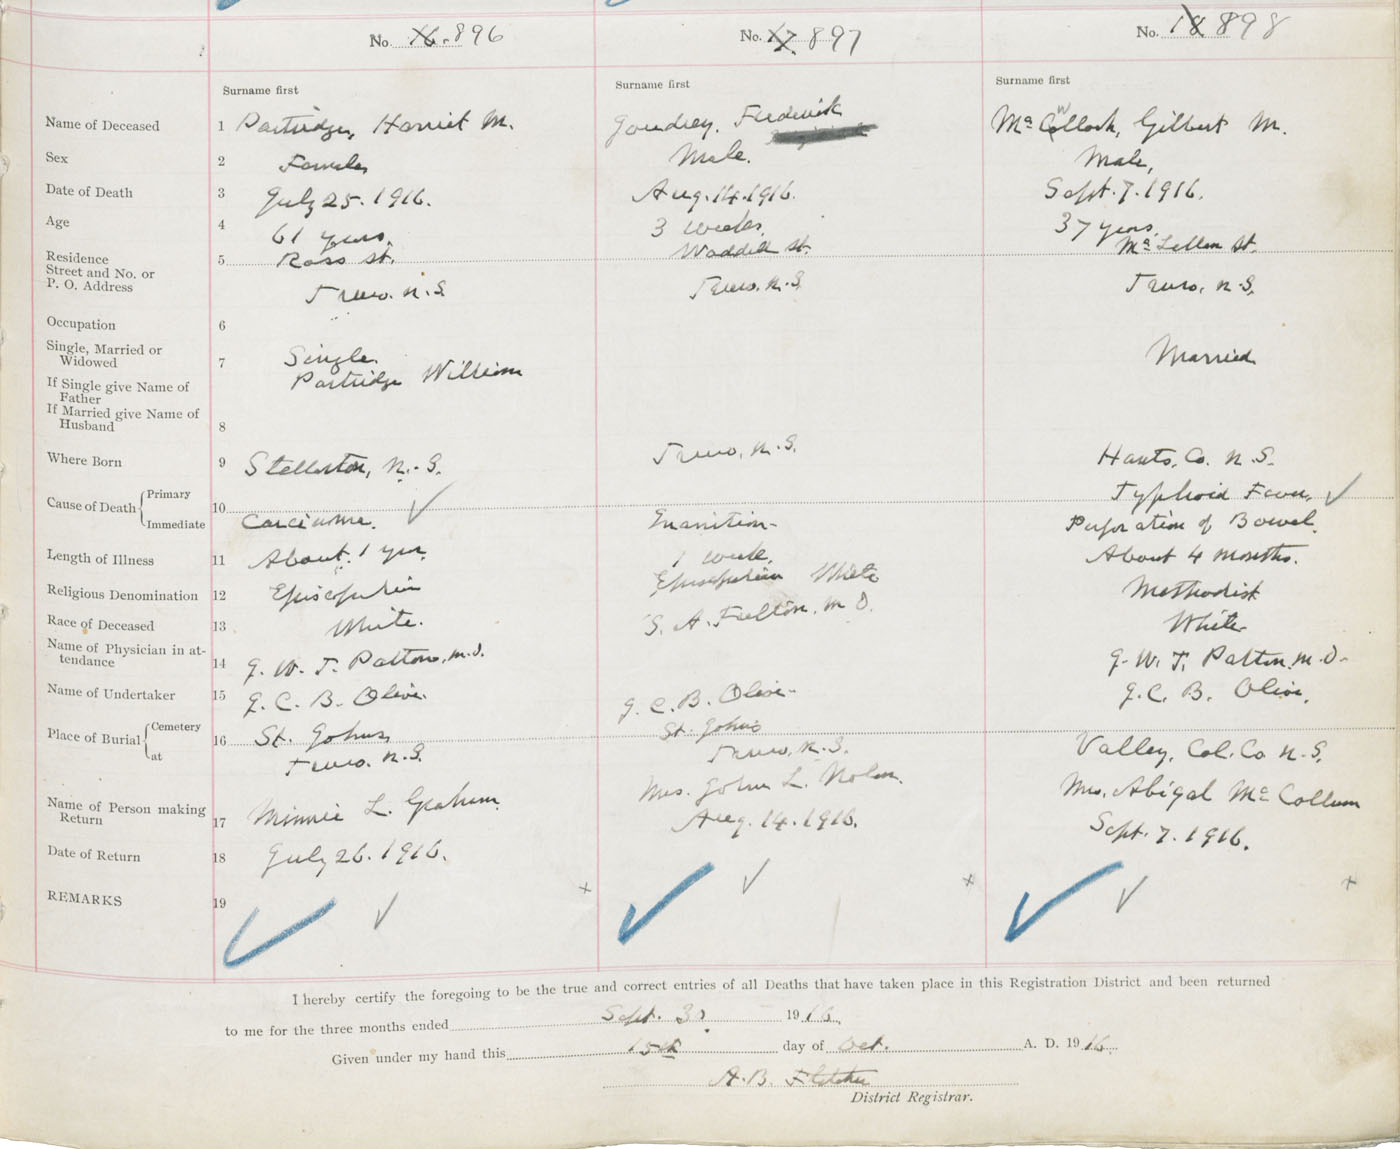 No. 16. 896
No. 17. 897
No. 18 898
Surname first
Surname first
Surname first
Name of Deceased 1 Partridge, Harriet M. Goudrey, Frederick McCollock, Gilbert M.
Sex 2 Female Male. Male,
Date of Death 3 July 25. 1916. Aug. 14. 1916. Sept. 7. 1916.
Age 4 61 years. 3 weeks. 37 years.
Residence 5 Ross St. Waddell St. McLellan St.
Street and No. or
P. O. Address Truro. N.S. Truro. N.S. Truro, N.S.
Occupation 6
Single, Married or
Widowed 7 Single. Married
If Single give Name of
Father Partridge William
If Married give Name of
Husband 8
Where Born 9 Stellarton, N.S. Truro, N.S. Hants. Co. N.S.
Cause of Death { Primary 10 Typhoid Fever.
Immediate Carcinoma. Inanition- Perforation of Bowel.
Length of Illness 11 About 1 year. 1 week. About 4 months.
Religious Denomination 12 Episcopalian Episcopalian White Methodist
Race of Deceased 13 White. S. A. Fulton, M.D. White
Name of Physician in at-
tendance 14 J. W. T. Patton, M.D. J. W. T. Patton, M.D.
Name of Undertaker 15 J. C. B. Olive. J. C. B. Olive. J. C. B. Olive.
Place of Burial { Cemetery 16 St. Johns St. Johns
at Truro. N.S. Truro, N.S. Valley, Col. Co N.S.
Name of Person making
Return 17 Minnie L. Graham Mrs. John L. Nolan. Mrs. Abigal McCollum
Date of Return 18 July 26. 1916. Aug. 14. 1916. Sept. 7. 1916.
REMARKS 19
I hereby certify the foregoing to be the true and correct entries of all Deaths that have taken place in this Registration District and been returned
to me for the three months ended Sept. 30 1916.
Given under my hand this 15th day of Oct. A. D. 1916.
A. B. Fletcher
District Registrar.